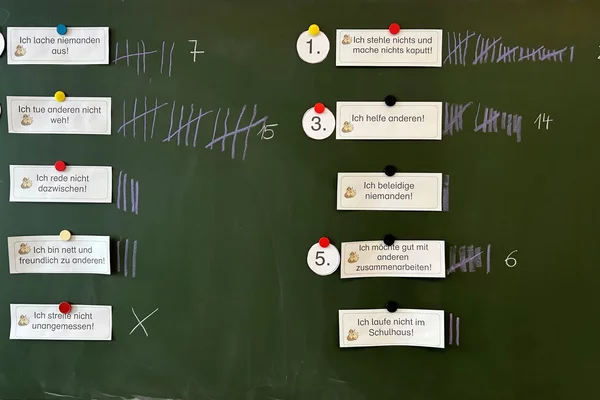 Ich lache niemanden
aus!
7
Ich tue anderen nicht
weh!
15
Ich rede nicht
dazwischen!
Ich bin nett und
freundlich zu anderen!
Ich streite nicht
unangemessen!
X
1.
Ich stehle nichts und
mache nichts kaputt!
3.
Ich helfe anderen!
14
Ich beleidige
niemanden!
5.
Ich möchte gut mit
anderen
zusammenarbeiten!
6
Ich laufe nicht im
Schulhaus!